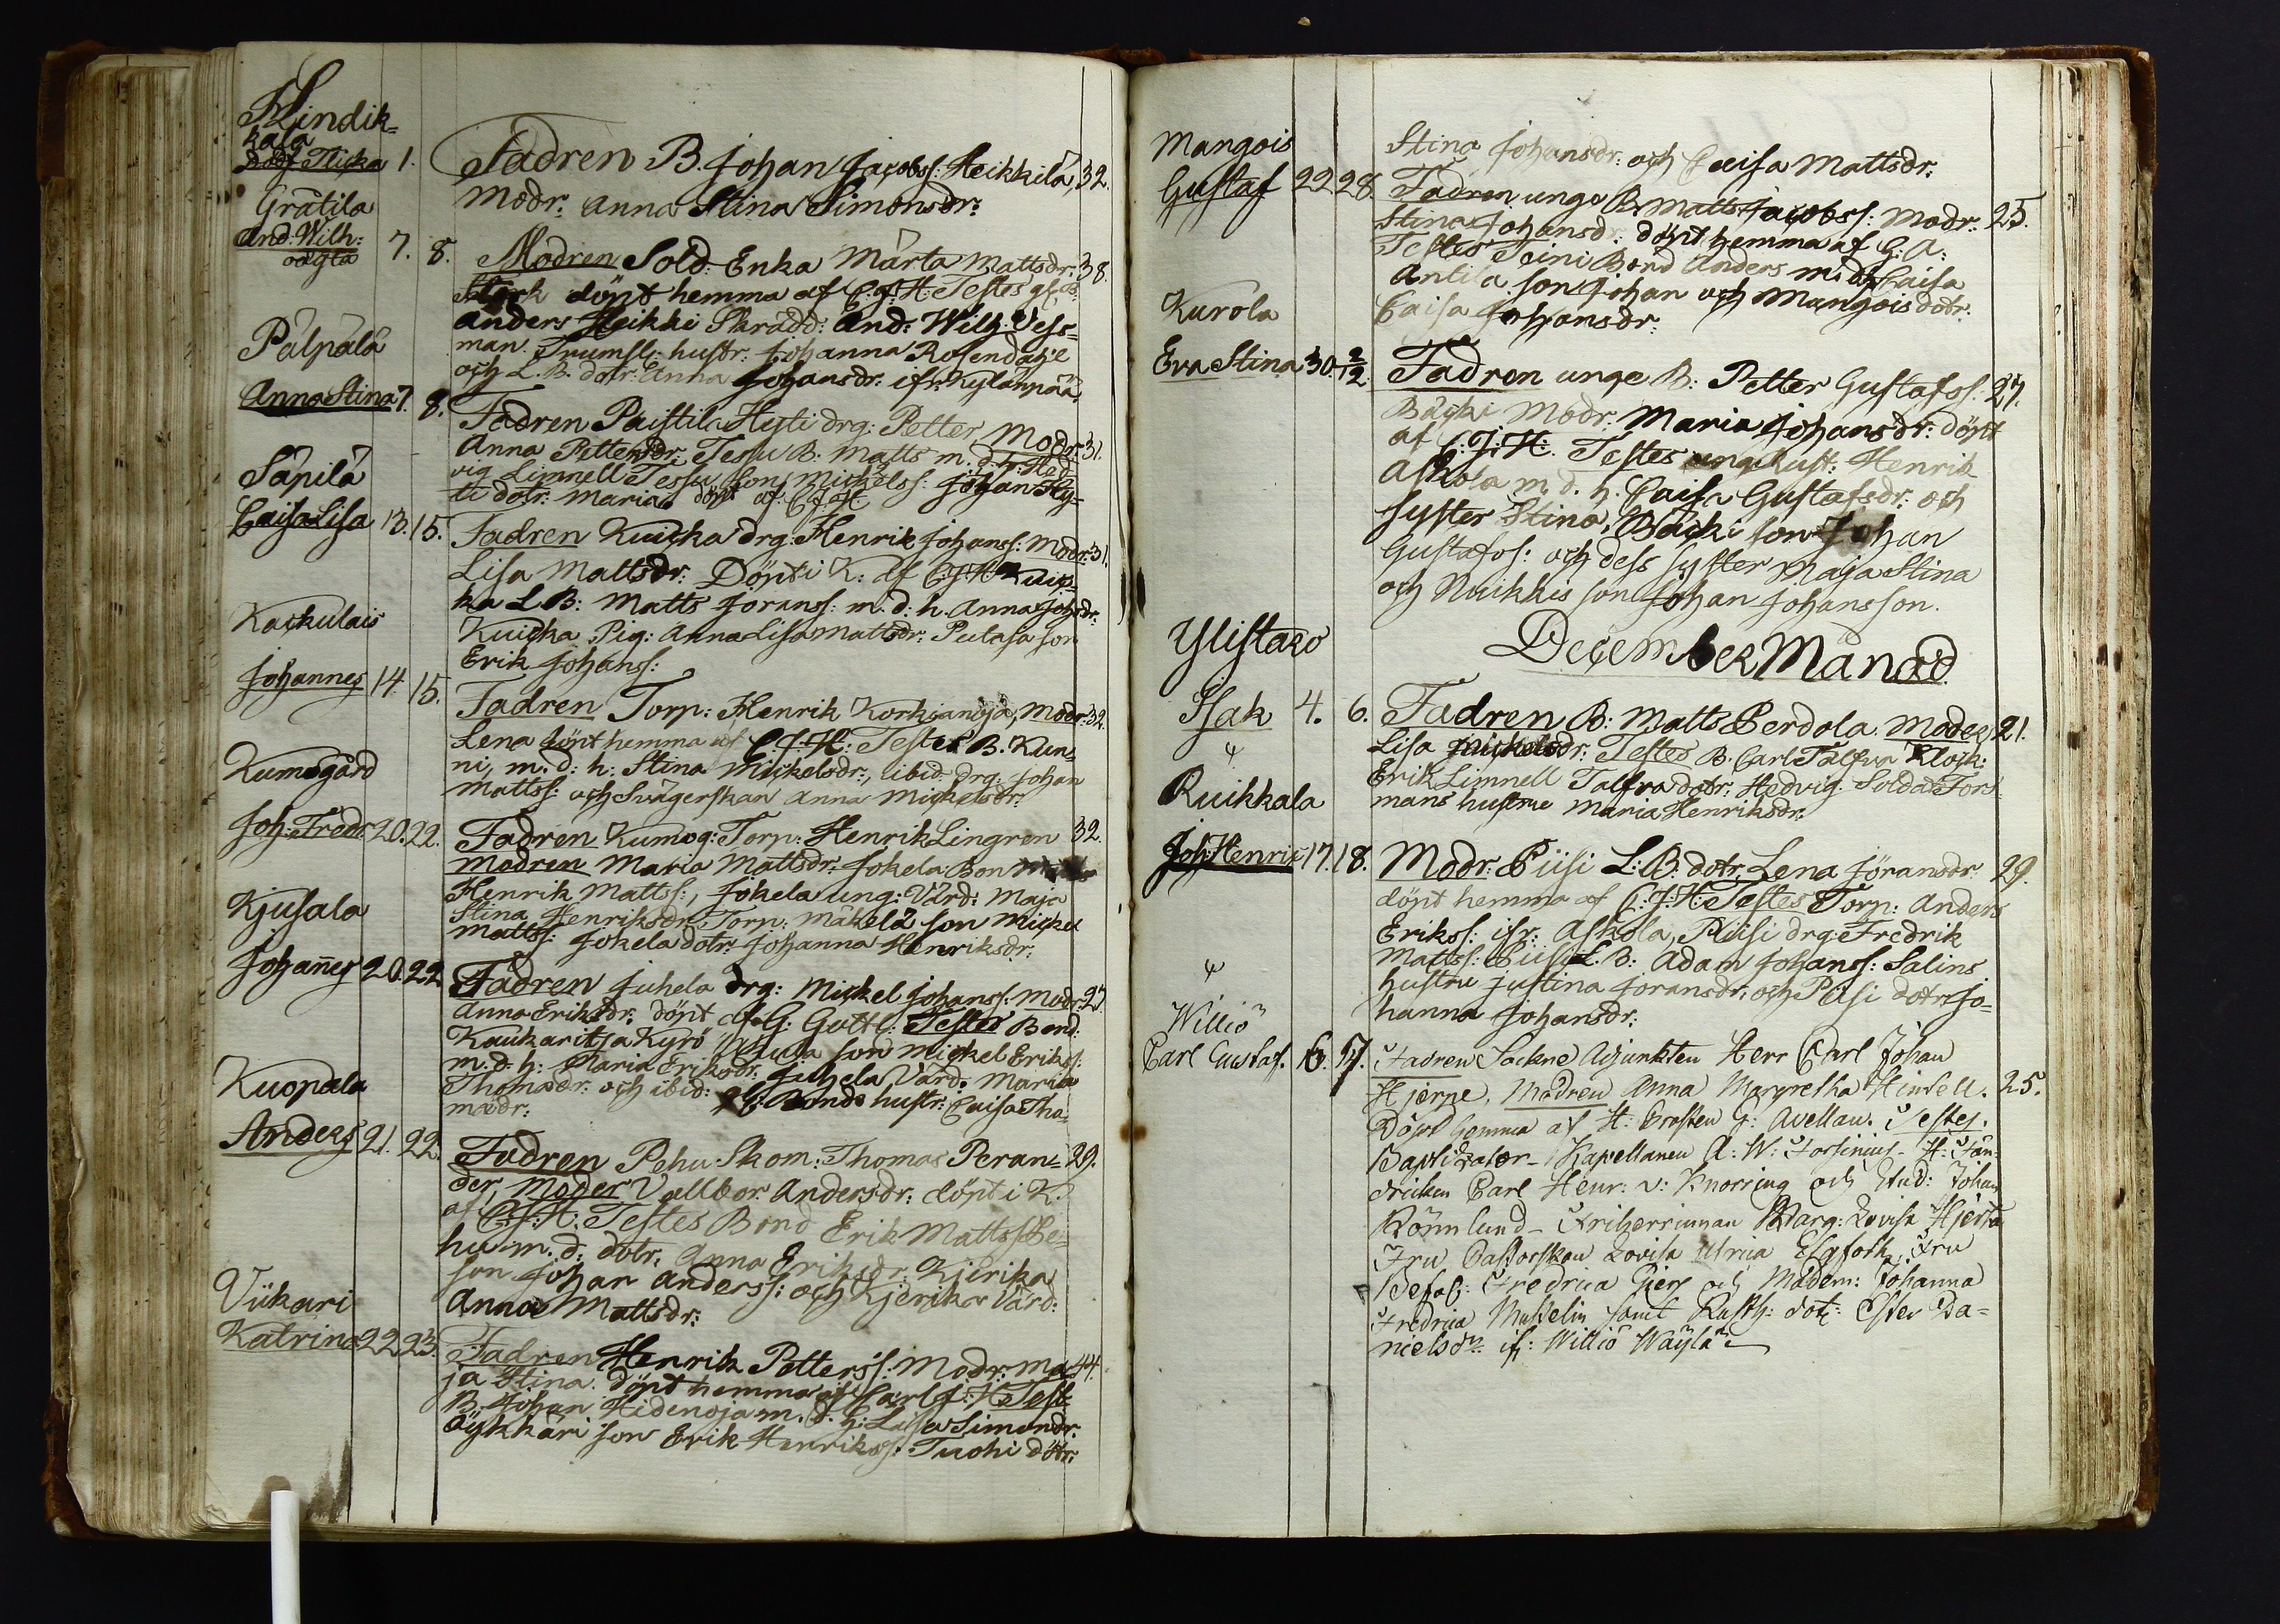 Hindik=
kala
Död Flicka 1. Fadren B. Johan Jacobss: Heikkilä, 32.
Modr: Anna Stina Simonsdr:
Grätila
And: Wilh: 7. 8. Modren Sold: Enka Märta Mattsdr: 38.
oägta
Stark döpt hemma af C. J. H: Testes
Anders Heikki Skrädd: And: Wilh. Vess=
man. Trumsl: hustr: Johanna Rosendahl
och L. B. dotr: Anna Johansdr. ifr: Kylänpää.
Pälpälä
Anna Stina 7. 8. Fadren Paistila Hyti drg: Petter Modr: 31.
Anna Pettersdr: Tessu B: Matts m. d. h: Hed=
vig Limnell Tessu son Mickelss: Johan Hy=
ti dotr: Maria döpt af C. J. H
Säpilä
Caisa Lisa 13. 15. Fadren Kuicka drg: Henrik Johanss: Modr: 31.
Lisa Mattsdr: Döpt i K: af C: J: H: Kuic=
ka L. B: Matts Joranss: m. d: h. Anna Johsdr:
Kuicka Pig: Anna Lisa Mattsdr: Pulaja son
Erik Johanss:
Kackulais
Johannes 14. 15. Fadren Torp: Henrik Korkianoja, Modr: 32.
Lena döpt hemma af C. J. H: Testes B. Kun=
ni, m. d: h: Stina Mickelsdr:, ibid: drg: Johan
Mattss: och Svägerskan Anna Mickelsdr:
Kumogård
Joh: Fredr: 20. 22. Fadren Kumog: Torp: Henrik Lingren 32.
Modren Maria Mattsdr. Jokela Bon
Henrik Mattss:, Jokela ung: Värd: Maja
Stina Henriksdr: Torp: Mäkelä son Mickel
Mattss: Jokela dotr: Johanna Henriksdr:
Kjusala
Johañes 20. 22. Fadren Juhela drg: Mickel Johanss: Modr: 27
Anna Eriksdr: döpt af G: Gottl: Testes Bond:
Kaukaritsa Kyrö son Mickel Erikss:
m. d. h: Maria Eriksdr: Juhela Värd: Maria
Thomasdr: och ibid: Bonds hustr: Caisa Tho=
masdr:
Kuopala
Anders 21. 22. Fadren Pehu Skom: Thomas Peran= 29.
der, Moder Vallbor Andersdr: döpt i K.
af C. J. H: Testes Bond Erik Mattss Pe=
hu m. d: dotr: Anna Eriksdr: Kjerika
son Johan Anderss: och Kjerika Värd:
Anna Mattsdr:
Viikari
Katrina 22. 23. Fadren Henrik Petterss: Modr: Ma= 44.
ja Stina. Döpt hemma af Carl J: H: Test
B. Johan Hidenoja m. d. h: Lisa Simonsdr.
Äykkäri son Erik Henrikss: Tuohi dotr:
Stina Johansdr: och Caisa Mattsdr.
Mangois
Gustaf 22 28. Fadren unge B: Matts Jacobss: Modr: 25.
Stina Johansdr: döpt hemma af G: A:
Testes Teini Bond Anders m. d: h Caisa
Antila son Johan och Mangois dotr:
Caisa Johansdr:
Kurola
Eva Stina 30. 2/12. Fadren unge B: Petter Gustafss: 27.
Bäcki Modr: Maria Johansdr: döpt
af C: J: H: Testes unge Rust: Henrik
Askola m. d. h. Caisa Gustafsdr: och
Syster Stina, Bäcki son Johan
Gustafss: och dess syster Maja Stina
och Nuikkis son Johan Johansson.
December Månad
Ylistaro
Isak 4. 6. Fadren B: Matts Perdola. Moder 21.
Lisa Mickelsdr: Testes B. Carl Talfva Klock:
Erik Limnell Talfva dotr: Hedvig. Soldat Fors
mans hustrue Maria Henriksdr:
Ruikkala
Joh: Henrik 17. 18. Modr: Piisi L: B: dotr: Lena Jöransdr: 29.
döpt hemma af C: J: H: Testes Torp: Anders
Erikss: ifr: Askola, Piisi drg: Fredrik
Mattss: Piisi L: B: Adam Johanss: Salins
hustru Justina Joransdr: och Piisi dotr: Jo=
hanna Johansdr:
Williö
Carl Gustaf. 6. 17. Fadren Sockne Adjunkten Herr Carl Johan
Hjerpe, Modren Anna Margretha Hinsell. 25.
Döpt hemma af H: Prosten G: Avellan. Testes.
Baptizator – Kapellanen A: W: Forsinius – H: Fän=
dricken Carl Henr: v: Knorring och Stud: Johan
Römlund – Friherrinnan Marg: Lovisa Hjerta
Fru Pastorskan Lovisa Ulrica Elgfoth, Fru
Befal: Fredrica Giers och Madem: Johanna
Fredrica Musselin samt Rusth: dotr: Ester Da=
nielsdr: ifr: Williö Wäylä